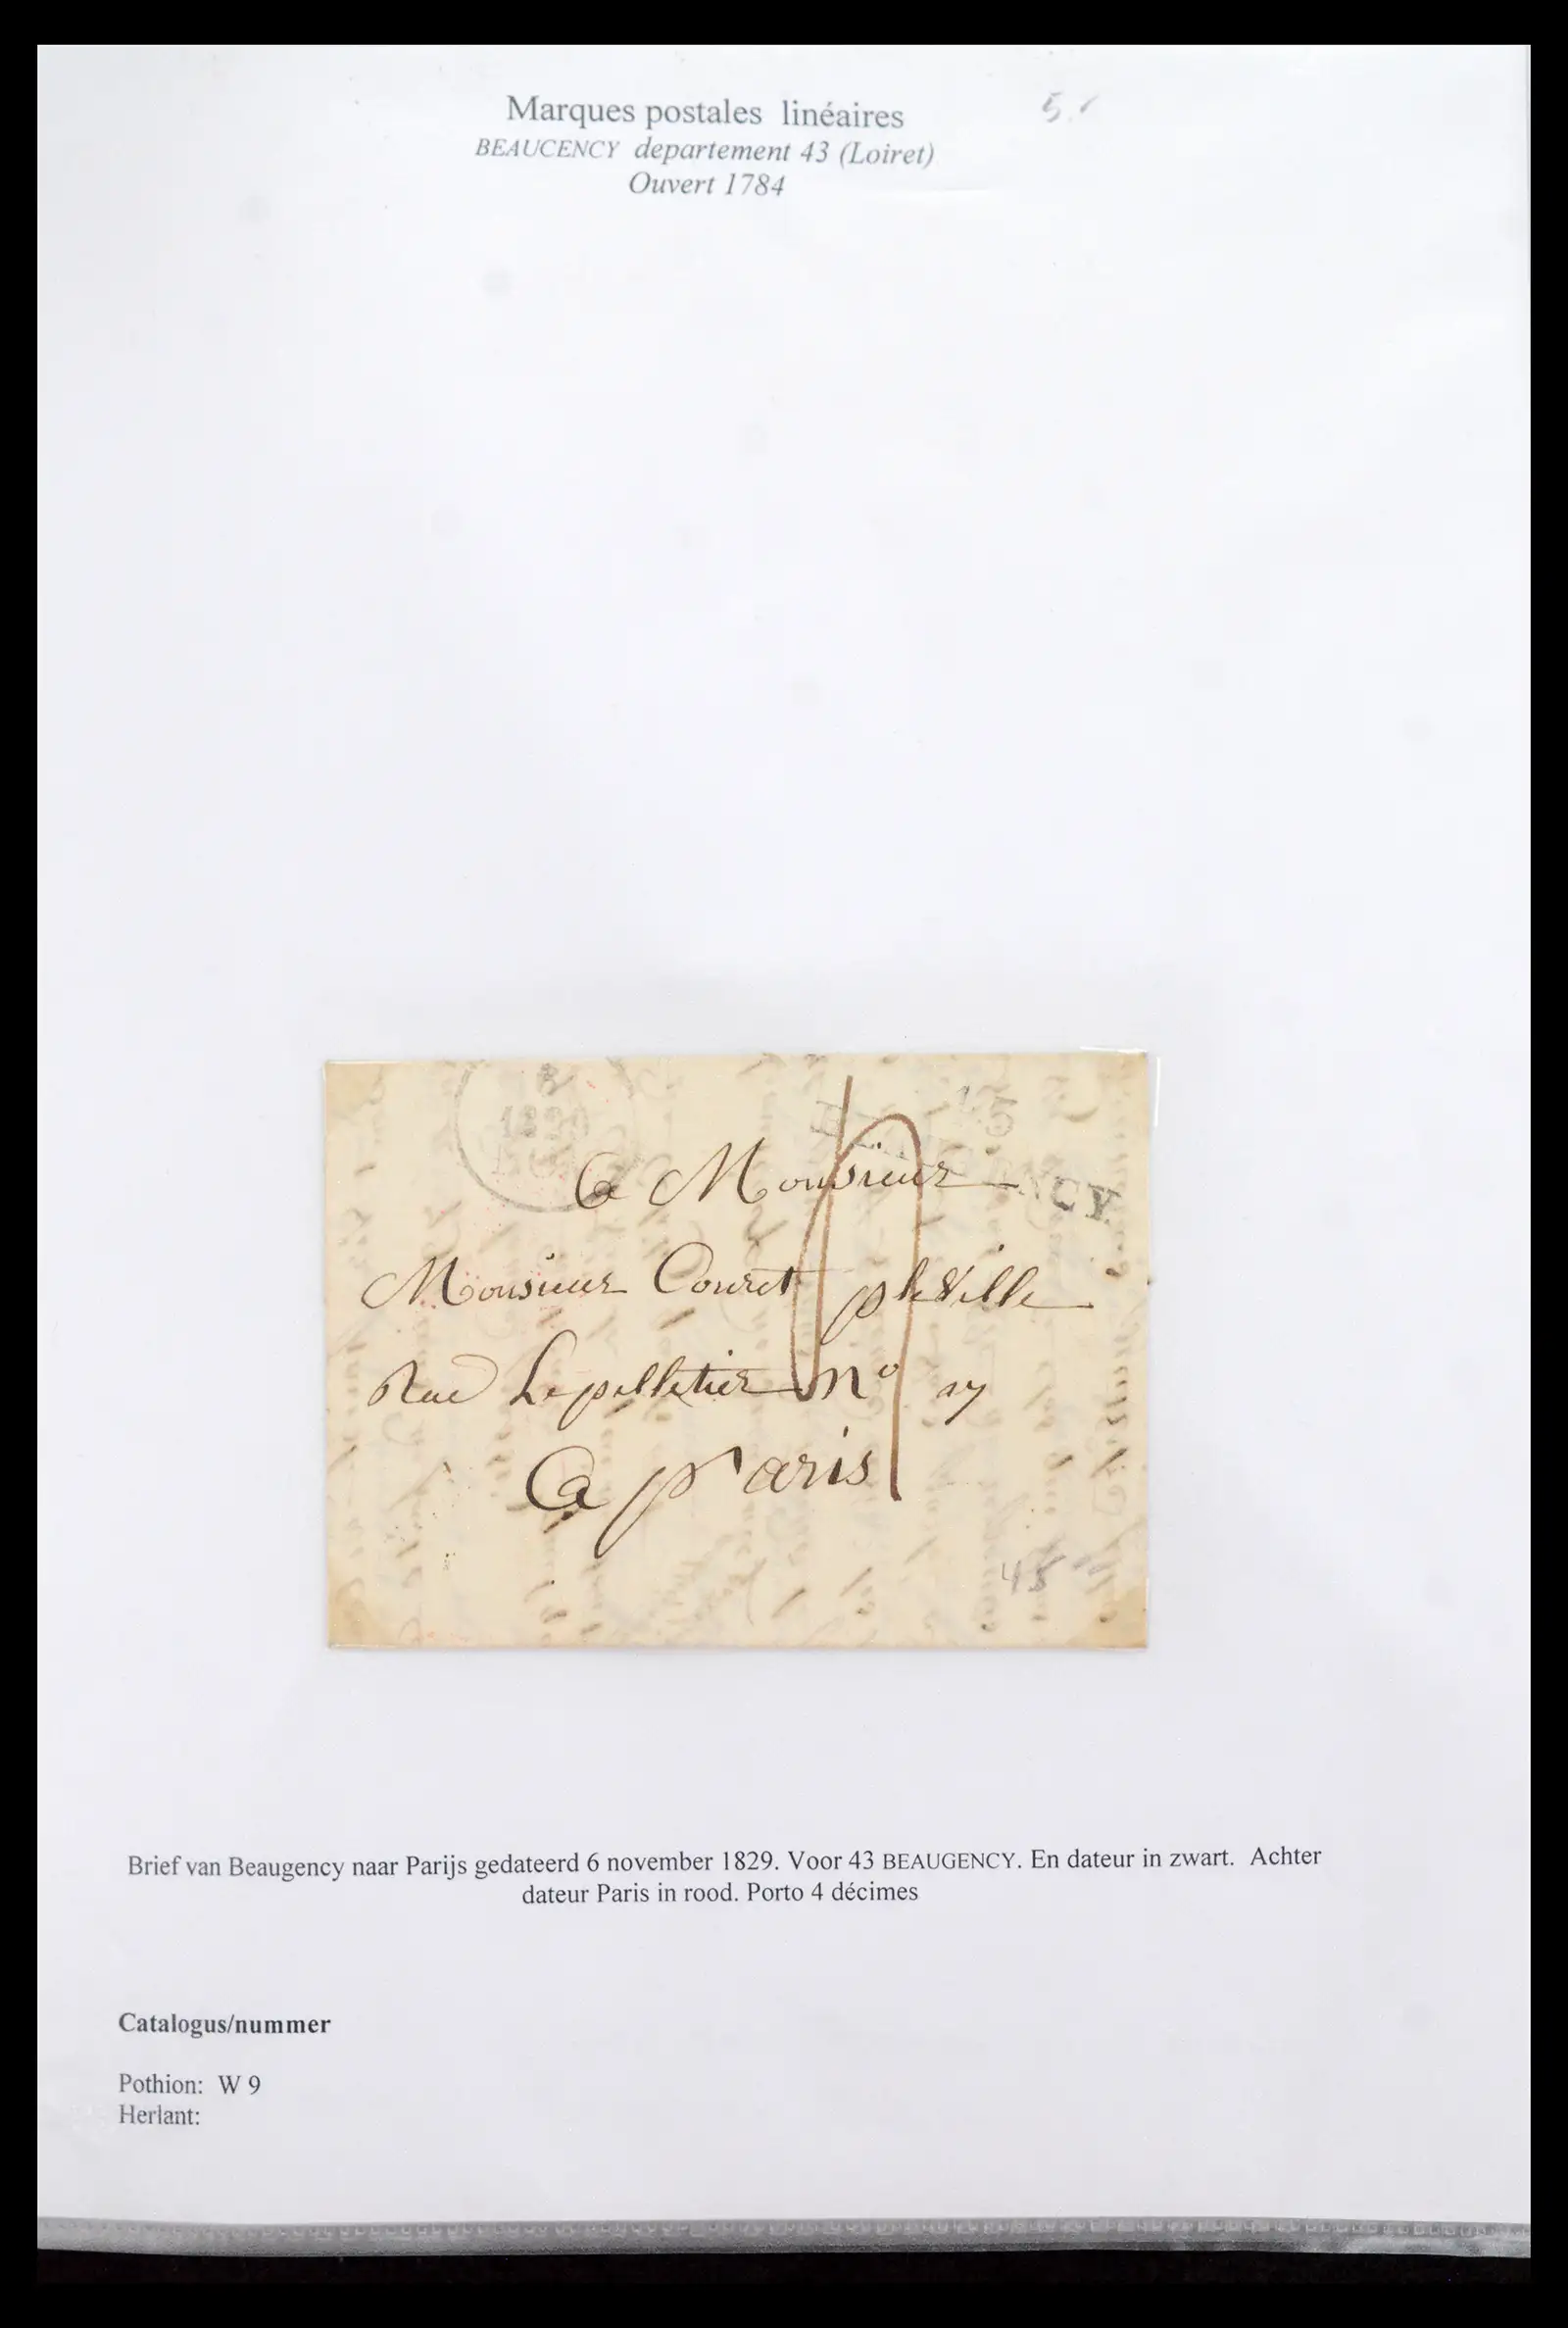 Marques postales linéaires
5.
BEAUCENCY departement 43 (Loiret)
Ouvert 1784
1829
43
NCY
A Monsieur
Monsieur Couret pleville
Rue Lepelletier no 17
A paris
48
Brief van Beaugency naar Parijs gedateerd 6 november 1829. Voor 43 BEAUGENCY. En dateur in zwart. Achter
dateur Paris in rood. Porto 4 décimes
Catalogus/nummer
Pothion: W 9
Herlant: